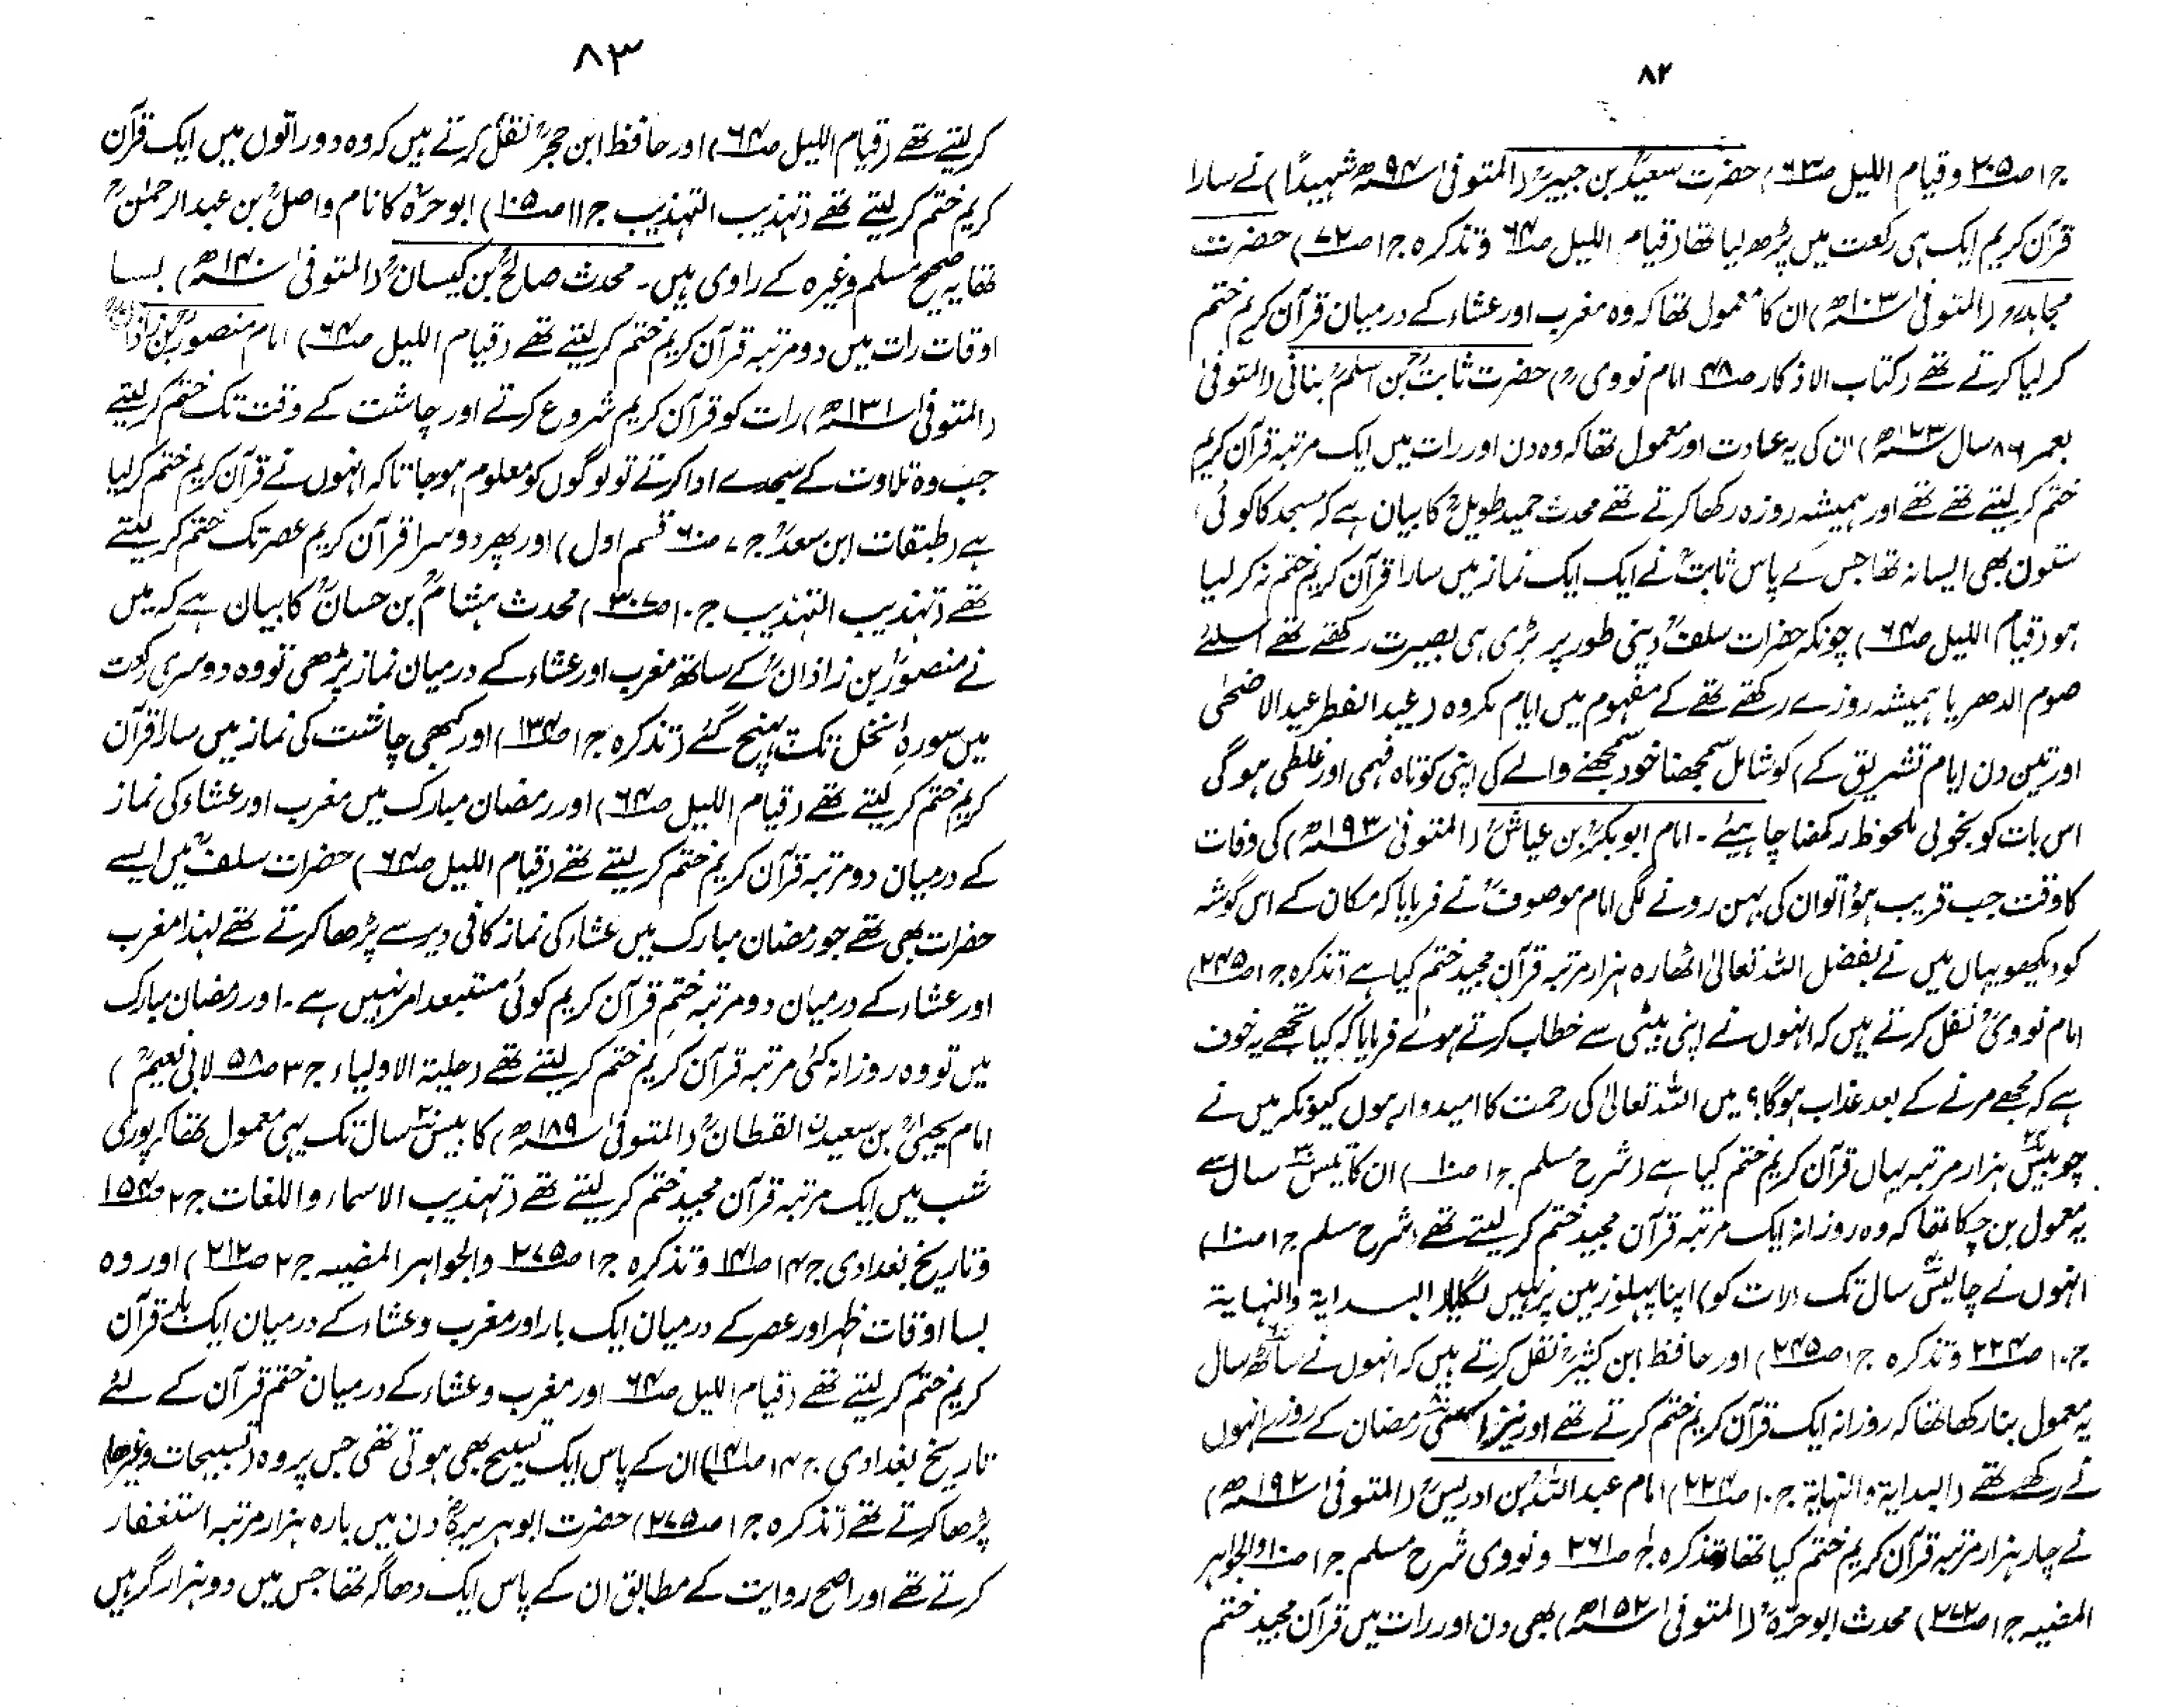 ۸۲
ج۱ ص۲۰۵ و قیام اللیل ص۶۳) حضرت سعیدؒ بن جبیرؒ (المتوفیٰ ۹۴ھ شہیداً) نے سارا
قرآن کریم ایک ہی رکعت میں پڑھ لیا تھا (قیام اللیل ص۶۴ و تذکرہ ج۱ ص۷۲) حضرت
مجاہدؒ (المتوفیٰ ۱۰۳ھ) ان کا معمول تھا کہ وہ مغرب اور عشاء کے درمیان قرآن کریم ختم
کر لیا کرتے تھے (کتاب الاذکار ص۴۸ امام نوویؒ) حضرت ثابتؒ بن اسلمؒ بنانی (المتوفیٰ
بعمر ۸۶ سال ۱۲۳ھ) ان کی یہ عادت اور معمول تھا کہ وہ دن اور رات میں ایک مرتبہ قرآن کریم
ختم کر لیتے تھے تھے اور ہمیشہ روزہ رکھا کرتے تھے محدث حمید طویلؒ کا بیان ہے کہ مسجد کا کوئی
ستون بھی ایسا نہ تھا جس کے پاس ثابتؒ نے ایک ایک نماز میں سارا قرآن کریم ختم نہ کر لیا
ہو (قیام اللیل ص۶۴) چونکہ حضرات سلفؒ دینی طور پر بڑی ہی بصیرت رکھتے تھے اسلئے
صوم الدھر یا ہمیشہ روزے رکھتے تھے کے مفہوم میں ایام مکروہ (عید الفطر عید الاضحیٰ
اور تین دن ایام تشریق کے) کو شامل سمجھنا خود سمجھنے والے کی اپنی کوتاہ فہمی اور غلطی ہو گی
اس بات کو بخوبی ملحوظ رکھنا چاہیئے۔ امام ابوبکرؒ بن عیاشؒ (المتوفیٰ ۱۹۳ھ) کی وفات
کا وقت جب قریب ہؤا تو ان کی بہن رونے لگی امام موصوفؒ نے فرمایا کہ مکان کے اس گوشہ
کو دیکھو یہاں میں نے بفضل اللہ تعالیٰ اٹھارہ ہزار مرتبہ قرآن مجید ختم کیا ہے (تذکرہ ج۱ ص۲۴۵)
امام نوویؒ نقل کرتے ہیں کہ انہوں نے اپنی بیٹی سے خطاب کرتے ہوئے فرمایا کہ کیا تجھے یہ خوف
ہے کہ مجھے مرنے کے بعد عذاب ہوگا؟ میں اللہ تعالیٰ کی رحمت کا امیدوار ہوں کیونکہ میں نے
چوبیس ہزار مرتبہ یہاں قرآن کریم ختم کیا ہے (شرح مسلم ج۱ ص۱۰) ان کا تیس سال سے
یہ معمول بن چکا تھا کہ وہ روزانہ ایک مرتبہ قرآن مجید ختم کر لیتے تھے (شرح مسلم ج۱ ص۱۰)
انہوں نے چالیس سال تک (رات کو) اپنا پہلو زمین پر نہیں لگایا (البدایۃ والنہایۃ
ج۱۰ ص۲۲۴ و تذکرہ ج۱ ص۲۴۵) اور حافظ ابن کثیرؒ نقل کرتے ہیں کہ انہوں نے ساٹھ سال
یہ معمول بنا رکھا تھا کہ روزانہ ایک قرآن کریم ختم کرتے تھے اور نیز رمضان کے روزے انہوں
نے رکھے تھے (البدایۃ والنہایۃ ج۱۰ ص۲۲۴) امام عبداللہؒ بن ادریسؒ (المتوفیٰ ۱۹۲ھ)
نے چار ہزار مرتبہ قرآن کریم ختم کیا تھا (تذکرہ ج۱ ص۲۶۱ و نووی شرح مسلم ج۱ ص۱۰ والجواہر
المضیہ ج۱ ص۲۷۲) محدث ابوحرہؒ (المتوفیٰ ۱۵۲ھ) بھی دن اور رات میں قرآن مجید ختم
۸۳
کر لیتے تھے (قیام اللیل ص۶۴) اور حافظ ابن حجرؒ نقل کرتے ہیں کہ وہ دو راتوں میں ایک قرآن
کریم ختم کر لیتے تھے (تہذیب التہذیب ج۱۱ ص۱۰۵) ابوحرہؒ کا نام واصلؒ بن عبدالرحمٰنؒ
تھا یہ صحیح مسلم وغیرہ کے راوی ہیں۔ محدث صالحؒ بن کیسانؒ (المتوفیٰ ۱۴۰ھ) بسا
اوقات رات میں دو مرتبہ قرآن کریم ختم کر لیتے تھے (قیام اللیل ص۶۴) امام منصورؒ بن زاذانؒ
(المتوفیٰ ۱۳۱ھ) رات کو قرآن کریم شروع کرتے اور چاشت کے وقت تک ختم کر لیتے
جب وہ تلاوت کے سجدے ادا کرتے تو لوگوں کو معلوم ہو جاتا کہ انہوں نے قرآن کریم ختم کر لیا
ہے (طبقات ابن سعدؒ ج۷ ص۶۰ قسم اول) اور پھر دوسرا قرآن کریم عصر تک ختم کر لیتے
تھے (تہذیب التہذیب ج۱۰ ص۳۰۷) محدث ہشامؒ بن حسانؒ کا بیان ہے کہ میں
نے منصورؒ بن زاذانؒ کے ساتھ مغرب اور عشاء کے درمیان نماز پڑھی تو وہ دوسری رکعت
میں سورہ النحل تک پہنچ گئے (تذکرہ ج۱ ص۱۳۴) اور کبھی چاشت کی نماز میں سارا قرآن
کریم ختم کر لیتے تھے (قیام اللیل ص۶۴) اور رمضان مبارک میں مغرب اور عشاء کی نماز
کے درمیان دو مرتبہ قرآن کریم ختم کر لیتے تھے (قیام اللیل ص۶۴) حضرات سلفؒ میں ایسے
حضرات بھی تھے جو رمضان مبارک میں عشاء کی نماز کافی دیر سے پڑھا کرتے تھے لہٰذا مغرب
اور عشاء کے درمیان دو مرتبہ ختم قرآن کریم کوئی مستبعد امر نہیں ہے۔ اور رمضان مبارک
میں تو وہ روزانہ کئی مرتبہ قرآن کریم ختم کر لیتے تھے (حلیۃ الاولیاء ج۳ ص۵۸ لابی نعیمؒ)
امام یحییٰؒ بن سعیدن القطانؒ (المتوفیٰ ۱۸۹ھ) کا بیس سال تک یہی معمول تھا کہ پوری
شب میں ایک مرتبہ قرآن مجید ختم کر لیتے تھے (تہذیب الاسماء واللغات ج۲ ص۱۵۴
و تاریخ بغدادی ج۱۴ ص۱۴۱ و تذکرہ ج۱ ص۲۷۵ والجواہر المضیہ ج۲ ص۲۱۲) اور وہ
بسا اوقات ظہر اور عصر کے درمیان ایک بار اور مغرب و عشاء کے درمیان ایک بار قرآن
کریم ختم کر لیتے تھے (قیام اللیل ص۶۴ اور مغرب و عشاء کے درمیان ختم قرآن کے لئے
تاریخ بغدادی ج۱۴ ص۱۴۱) ان کے پاس ایک تسبیح بھی ہوتی تھی جس پر وہ (تسبیحات وغیرھا)
پڑھا کرتے تھے (تذکرہ ج۱ ص۲۷۵) حضرت ابوہریرہؓ دن میں بارہ ہزار مرتبہ استغفار
کرتے تھے اور اصح روایت کے مطابق ان کے پاس ایک دھاگہ تھا جس میں دو ہزار گرہیں